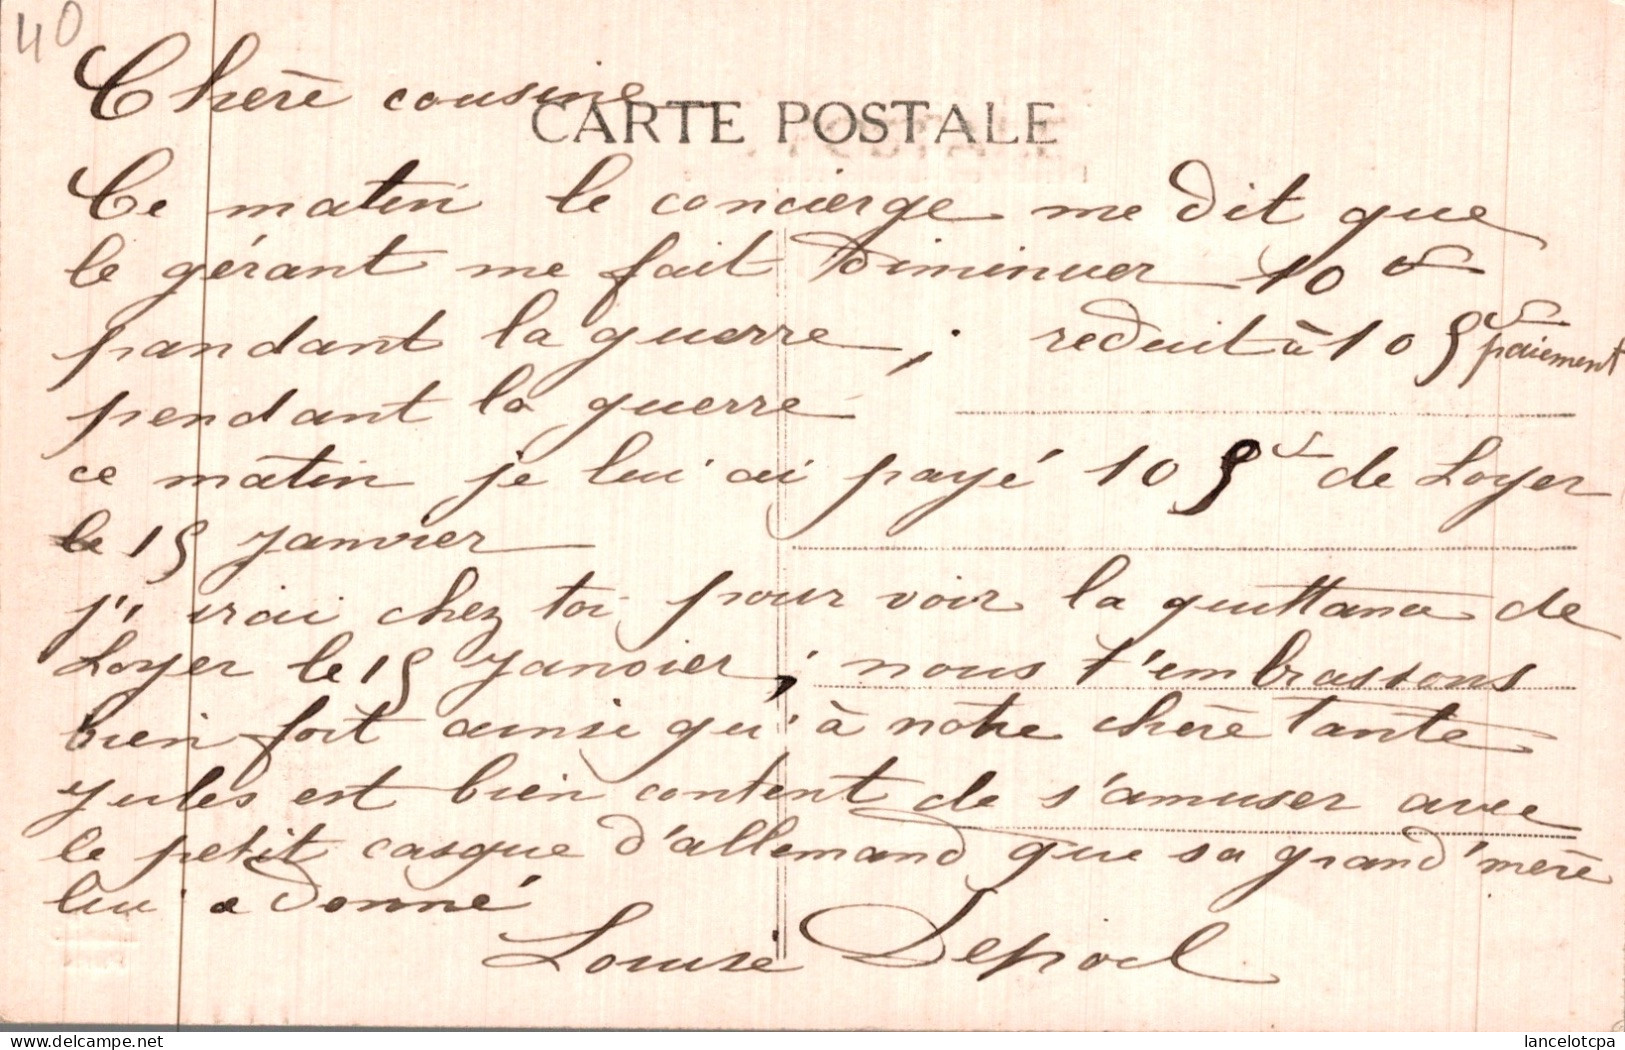 40
Chère cousine
CARTE POSTALE
Ce matin le concierge me dit que
le gérant me fait diminuer 10
pandant la guerre, reduit à 105 paiement
pendant la guerre
ce matin je lui ai payé 105 de Loyer
le 15 Janvier
j'irai chez toi pour voir la quittance de
Loyer le 15 Janvier; nous t'embrassons
bien fort ainsi qu'à notre chère tante
Jules est bien content de s'amuser avec
le petit casque d'allemand que sa grand'mère
lui a donné
Louise
delcampe.net
lancelotcpa